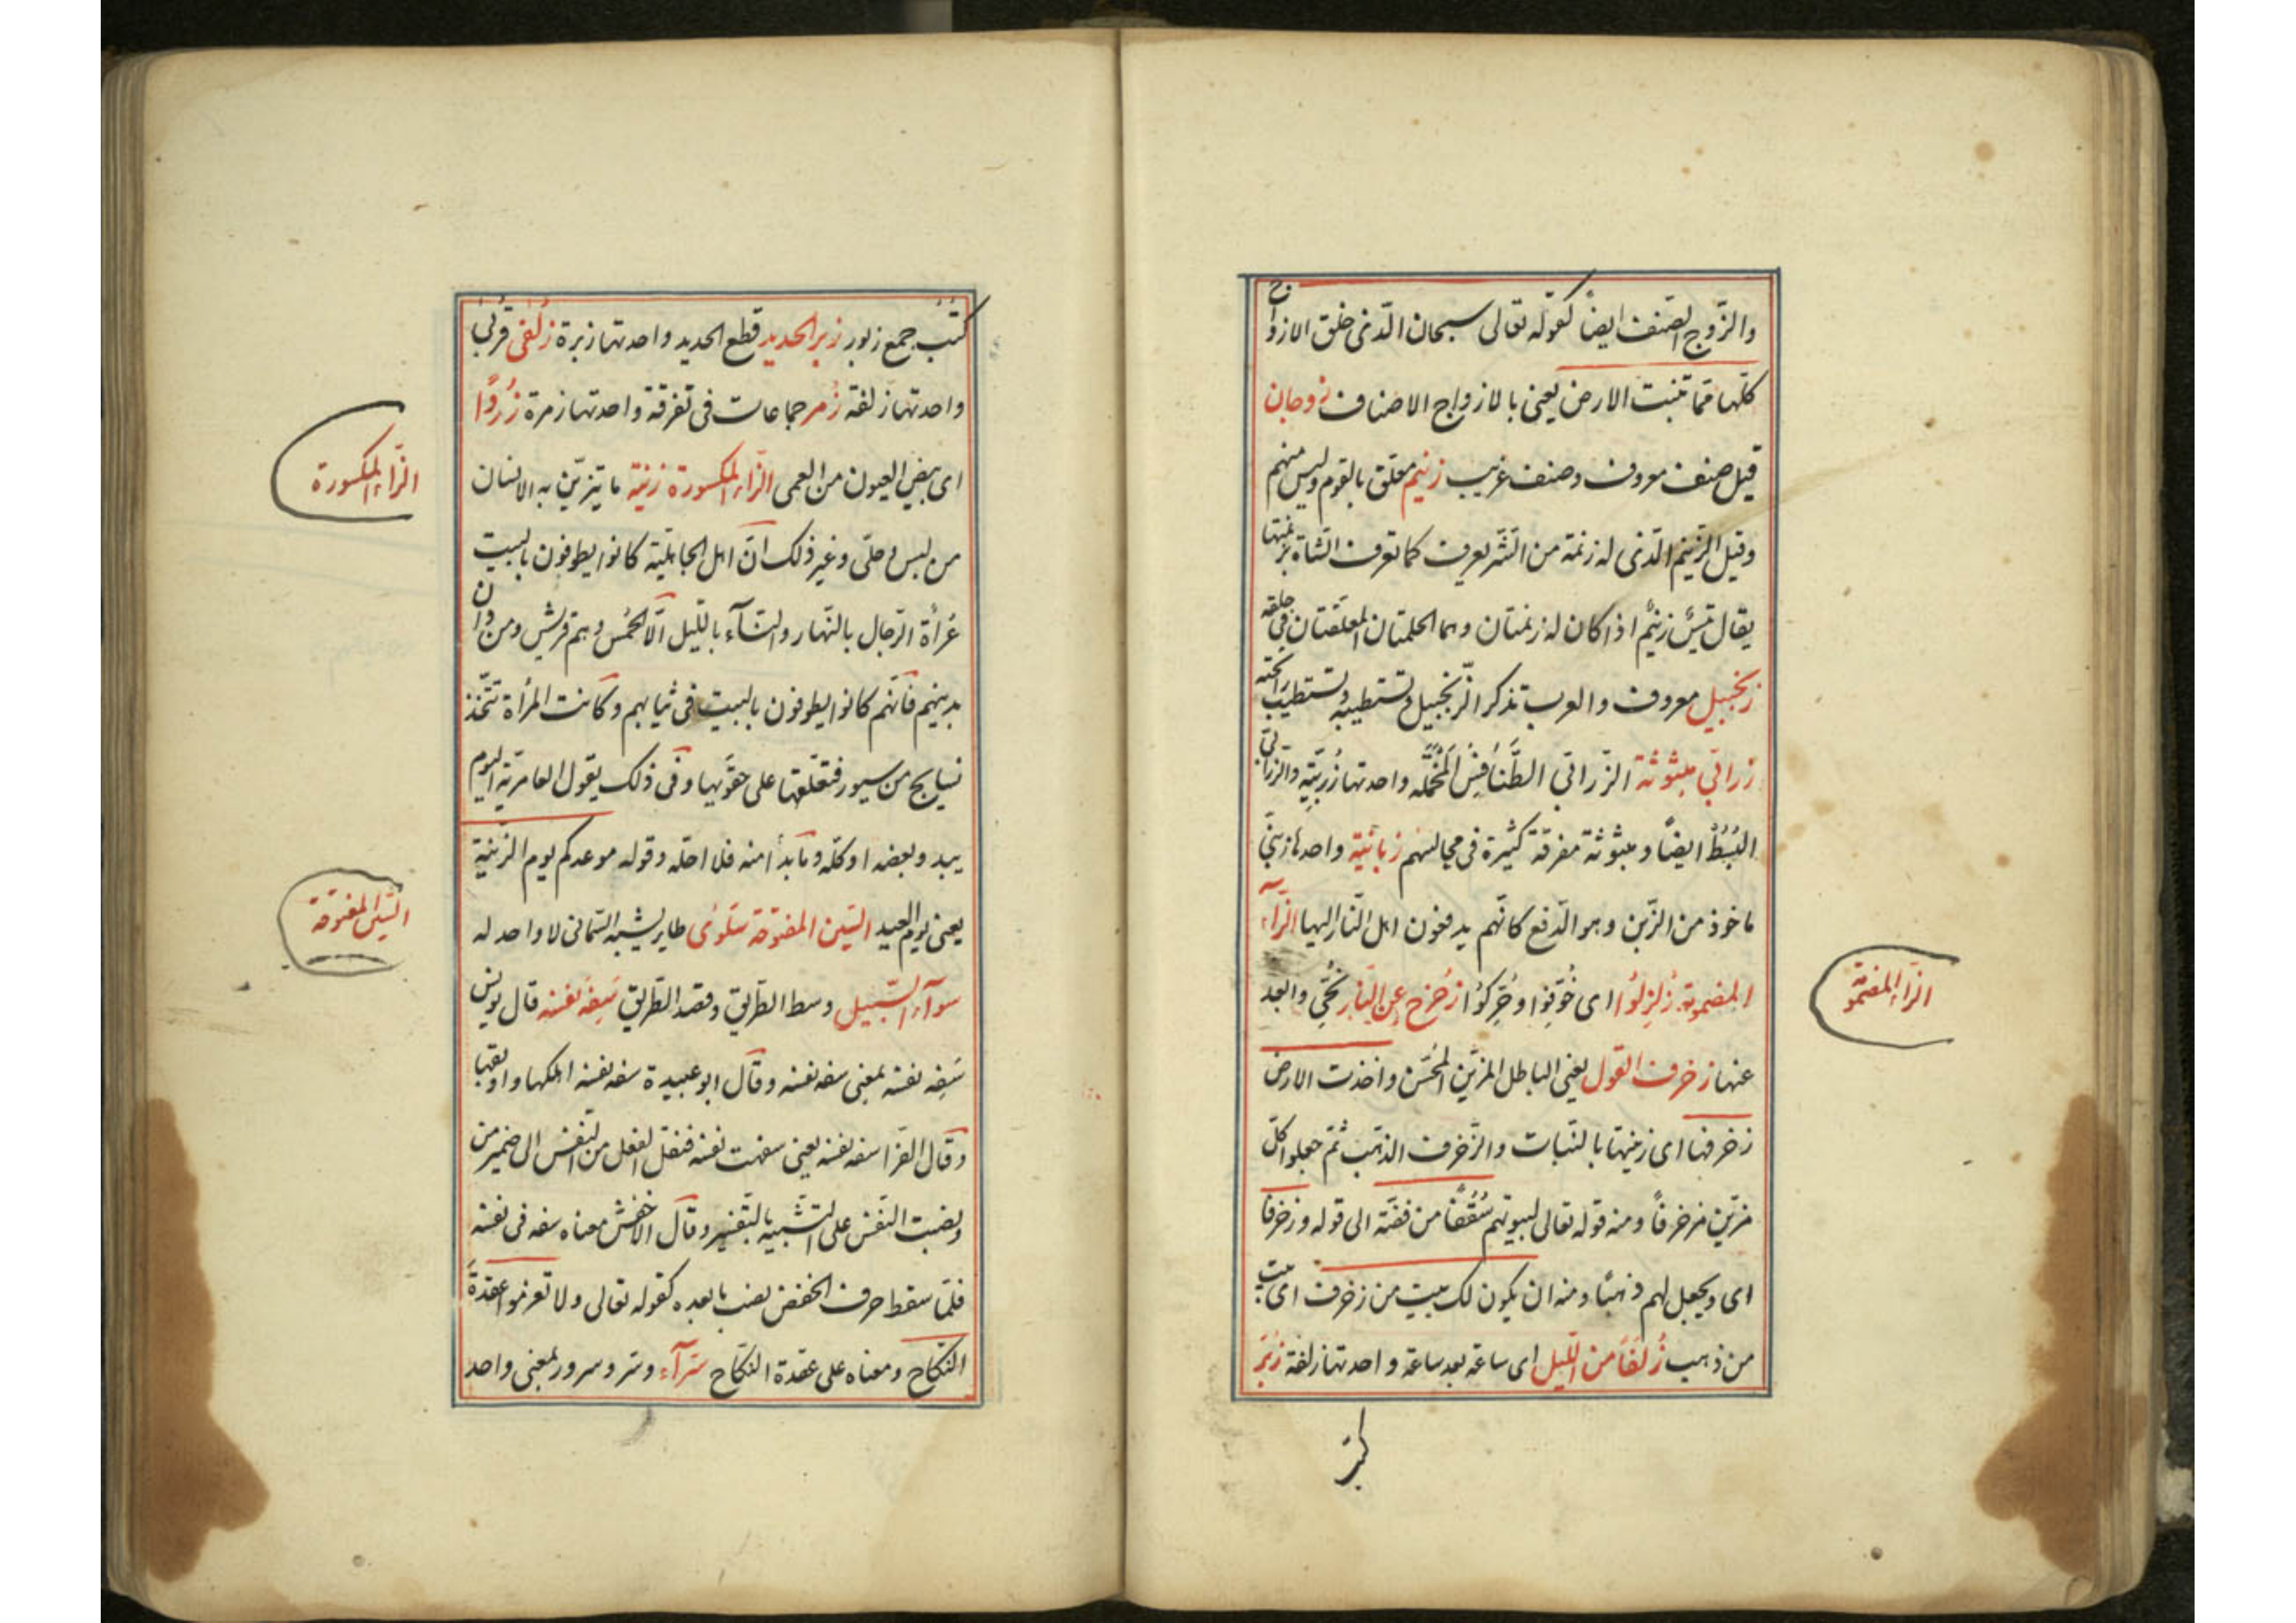 والزّوج الصّنف ايضاً كقوله تعالى سبحان الّذى خلق الازواج
كلّها ممّا تنبت الارض يعنى بالازواج الاصناف زوجان
قيل صنف معروف وصنف غريب زنيم معلق بالقوم وليس منهم
وقيل الزّنيم الّذى له زنمة من الشّر يعرف كما تعرف الشاة بزنمتها
يقال تيسٌ زنيمٌ اذا كان له زنمتان وهما الحلمتان المعلّقتان فى حلقه
زنجبيل معروف والعرب تذكر الزّنجبيل وتستطيبه وتستطيب رائحته
زرابّى مبثوثة الزّرابّى الطَّنَافِسُ المُخْمَّلَه واحدتها زُرْبِيّة والزّرابّى
البُسُطُ ايضاً ومبثوثة مفرّقة كثيرة فى مجالسهم زبانية واحدها زبنّى
ماخوذ من الزّبن وهو الدّفع كانّهم يدفعون اهل النّار اليها الزّآء
المضمومة زُلزِلُوا اى خُوّفِوا وحُرِّكوُا زُحزِح عنِ النّار نُحِّى والبعد
عنها زخرف القول يعنى الباطل المزيّن المُحَسّن واخذت الارض
زخرفها اى زينتها بالنّبات والزّخرف الذّهب ثمّ جعلوا كلّ
مزيّن مزخرفاً ومنه قوله تعالى لبيوتهم سُقُفًا من فضّة الى قوله وزخرفا
اى ويجعل لهم ذهبًا ومنه ان يكون لك بيت من زخرف اى بيت
من ذهب زُلَفًا من اللّيل اى ساعة بعد ساعة واحدتها زلفة زبُر
كتبٌ
الزّاء المضمومة
كتُبٌ جمع زبور زبر الحديد قطع الحديد واحدتها زبرة زُلفى قُربىٰ
واحدتها زلفة زُمر جماعات فى تفرقة واحدتها زمرة زُرقًا
اى بيض العيون من العمى الزّاء المكسورة زينة ما يتزيّن به الانسان
من لبس وحلّى وغير ذلك انّ اهل الجاهليّة كانوا يطوفون بالبيت
عُراة الرّجال بالنّهار والنسآء باللّيل الّا الحُمس وهم قريش ومن دان
بدينهم فانّهم كانوا يطوفون بالبيت فى ثيابهم وكانت المرأة تتّخذ
نسايج من سيور فتعلّقها على حقويها وفى ذلك يقول العامريّة اليوم
يبدو بعضه او كلّه وما بدأ منه فلا احلّه وقوله موعدكم يوم الزّينة
يعنى يوم العيد السّين المفتوحة سَلوٰى طاير يشبه السّمانى لا واحد له
سوآء السّبيل وسط الطّريق وقصد الطّريق سَفِهَ نفسه قال يونس
سَفِه نفسه بمعنى سفه نفسه وقال ابو عبيدة سفه نفسه اهلكها واوبقها
وقال الفرّا سفه نفسه يعنى سفهت نفسه فنقل الفعل من النفس الى ضمير من
ونصبت النّفس على التّشبيه بالتّفسير وقال الاخفش معناه سفه فى نفسه
فلمّا سقط حرف الخفض نصب ما بعده كقوله تعالى ولا تعزموا عقدةَ
النّكاح ومعناه على عقدة النّكاح سرّآء وسرّ وسرور بمعنى واحد
الزّاء المكسورة
السّين المفتوحة